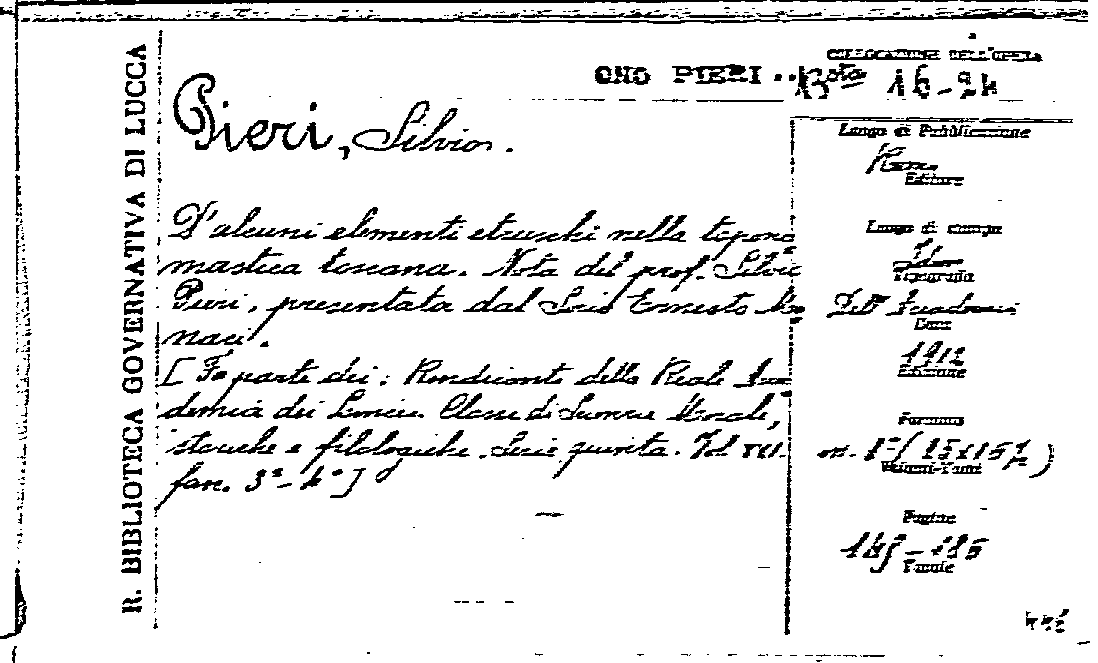 R. BIBLIOTECA GOVERNATIVA DI LUCCA
COLLOCAZIONE DELL'OPERA
ONO PIERI .. Bta 16-24
Pieri, Silvio.
D'alcuni elementi etruschi nella topono
mastica toscana. Nota del prof. Silvio
Pieri, presentata dal Socio Ernesto Mo
naci.
[Fa parte dei: Rendiconti della Reale Acca
demia dei Lincei. Classe di Scienze Morali,
storiche e filologiche. Serie quinta. Vol XXI.
fasc. 3º-4º]
Luogo di Pubblicazione
Roma
Editore
Luogo di stampa
Idem
Tipografia
Data
1912
Edizione
Formato
in. 8º (
)
Volumi-Tomi
Pagine
Tavole